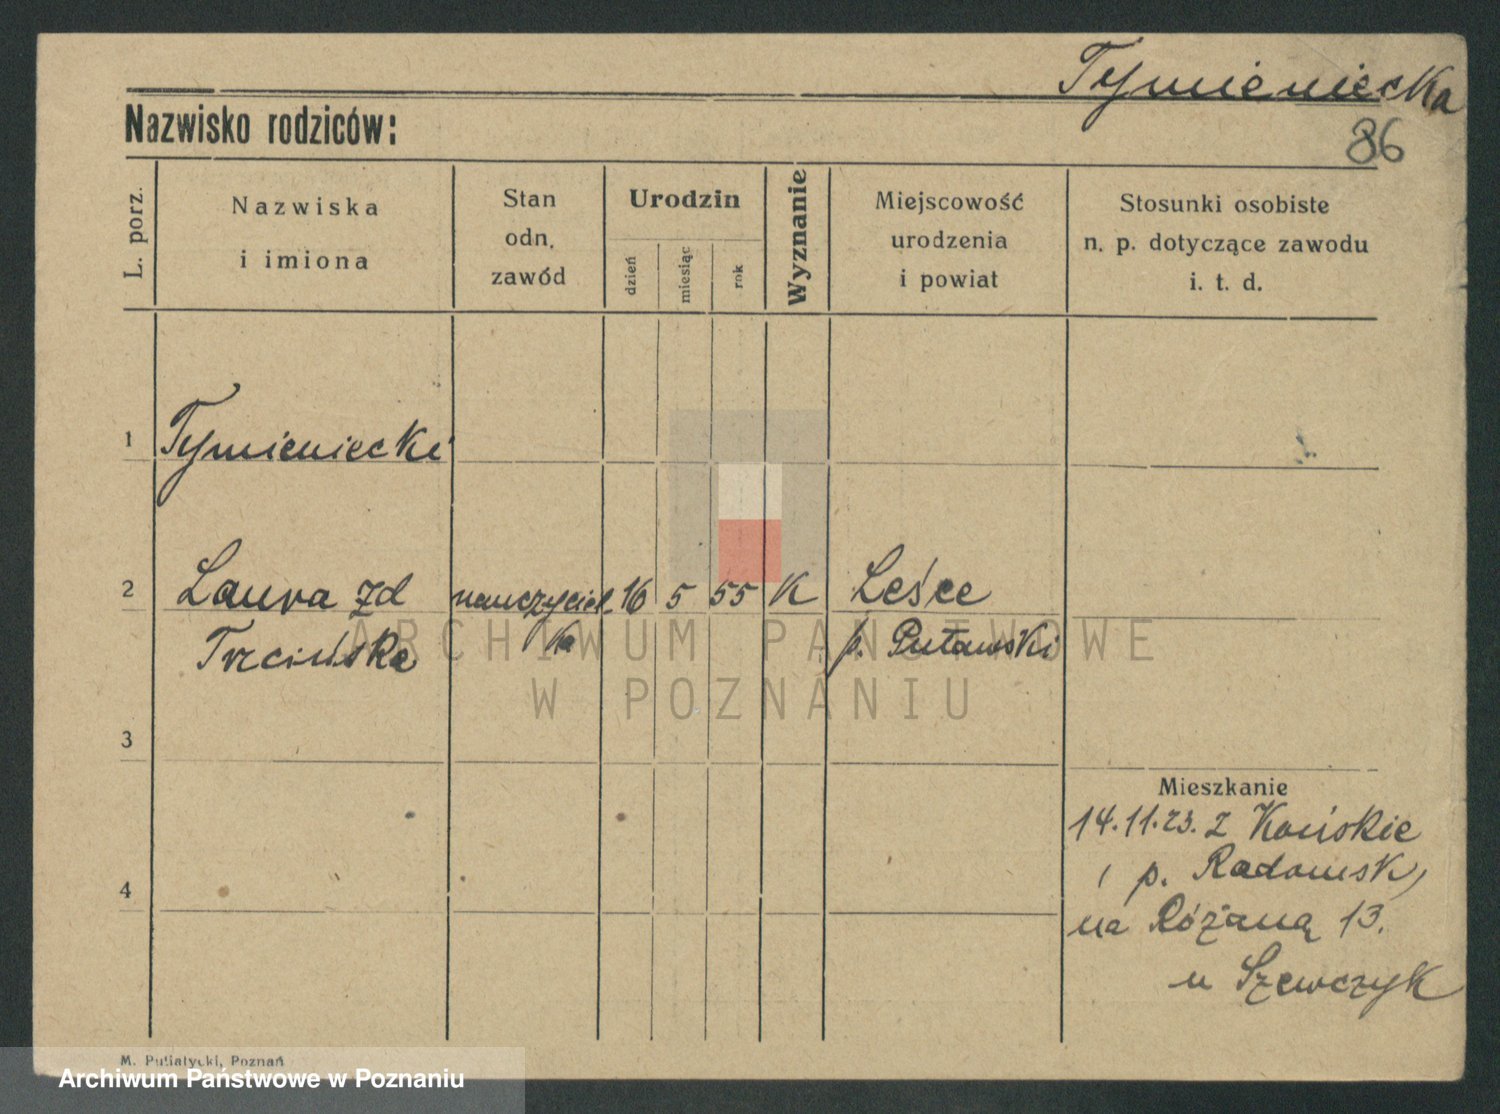 Tymieniecka
86
Nazwisko rodziców:
L. porz.
Nazwiska
i imiona
Stan
odn.
zawód
Urodzin
dzień
miesiąc
rok
Wyznanie
Miejscowość
urodzenia
i powiat
Stosunki osobiste
n. p. dotyczące zawodu
i. t. d.
1 Tymieniecki
2 Laura zd nauczyciel- 16 5 55 K Leśce
Trcińska ka p. Puławski
ARCHIWUM PAŃSTWOWE
W POZNANIU
3
Mieszkanie
14.11.23. z Końskie
p. Radomsk,
4
na Różaną 13.
u Szewczyk
M. Putiatycki, Poznań
Archiwum Państwowe w Poznaniu